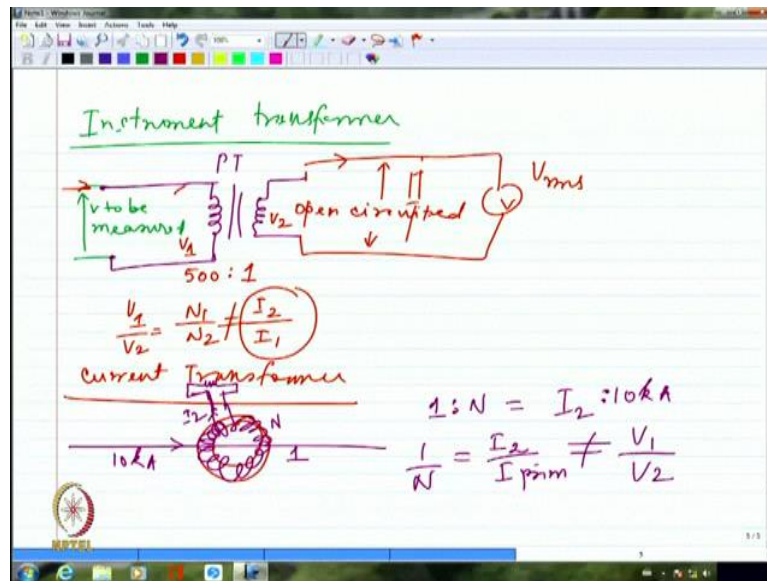 Note1 - Windows Journal
File Edit View Insert Actions Tools Help
100%
B I
Instrument transformer
PT
V to be measured
V1
V2
open circuited
V
Vrms
500 : 1
V1/V2 = N1/N2 ≠ I2/I1
Current Transformer
I2
N
10kA
1
1 : N = I2 : 10kA
1/N = I2/I prim ≠ V1/V2
NPTEL
5/5
5